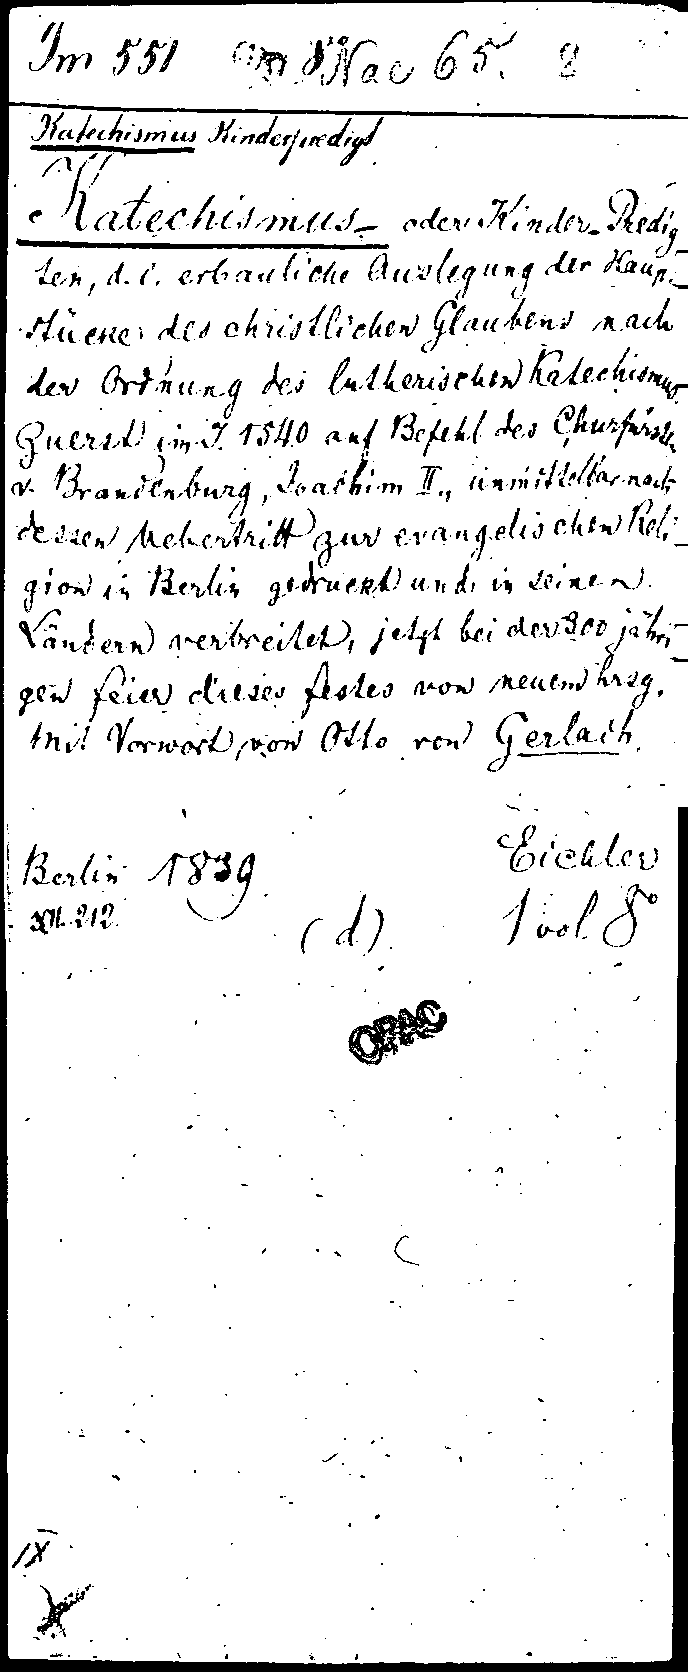 Im 551 8° Nac 65.
Katechismus Kinderpredigt
Katechismus- oder Kinder-Predig-
ten, d. i. erbauliche Auslegung der Haupt-
stücke des christlichen Glaubens nach
der Ordnung des lutherischen Katechismus.
Zuerst im J. 1540 auf Befehl des Churfürsten
v. Brandenburg, Joachim II., unmittelbar nach
dessen Uebertritt zur evangelischen Reli-
gion in Berlin gedruckt und in seinen
Ländern verbreitet, jetzt bei der 300 jähri-
gen feier dieses festes von neuem hrsg.
Mit Vorwort von Otto von Gerlach.
Berlin 1839 Eichler
XII. 212 (d) 1 vol 8°
OPAC
IX